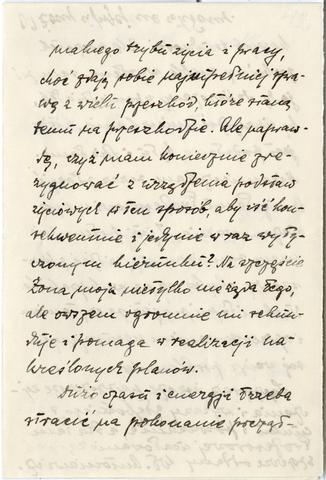 malnego trybu życia i pracy,
choć zdaję sobie najzupełniej spra-
wę z wielu przeszkód, które staną
temu na przeszkodzie. Ale napraw-
dę, czyż mam koniecznie zre-
zygnować z urządzenia podstaw
życiowych w ten sposób, aby iść kon-
sekwentnie i jedynie w raz wyty-
czonym kierunku? Na szczęście
żona moja nietylko nie żąda tego,
ale owszem ogromnie mi sekun-
duje i pomaga w realizacji na-
kreślonych planów.
Dużo czasu i energji trzeba
stracić na pokonanie